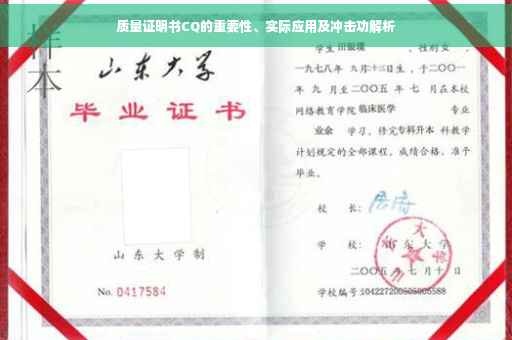 质量证明书CQ的重要性、实际应用及冲击功解析
样本
山东大学
毕业证书
山东大学制
No. 0417584
学生
性别女，
一九七八年 九月十三日生，于二〇〇一
年 九 月至二〇〇五 年 七 月在本校
网络教育学院 临床医学 专业
业余 学习，修完专科升本 科教学
计划规定的全部课程，成绩合格，准予
毕业。
校 长：
学 校： 山东大学
二〇〇五 年七月十日
学校编号：104227200505005588